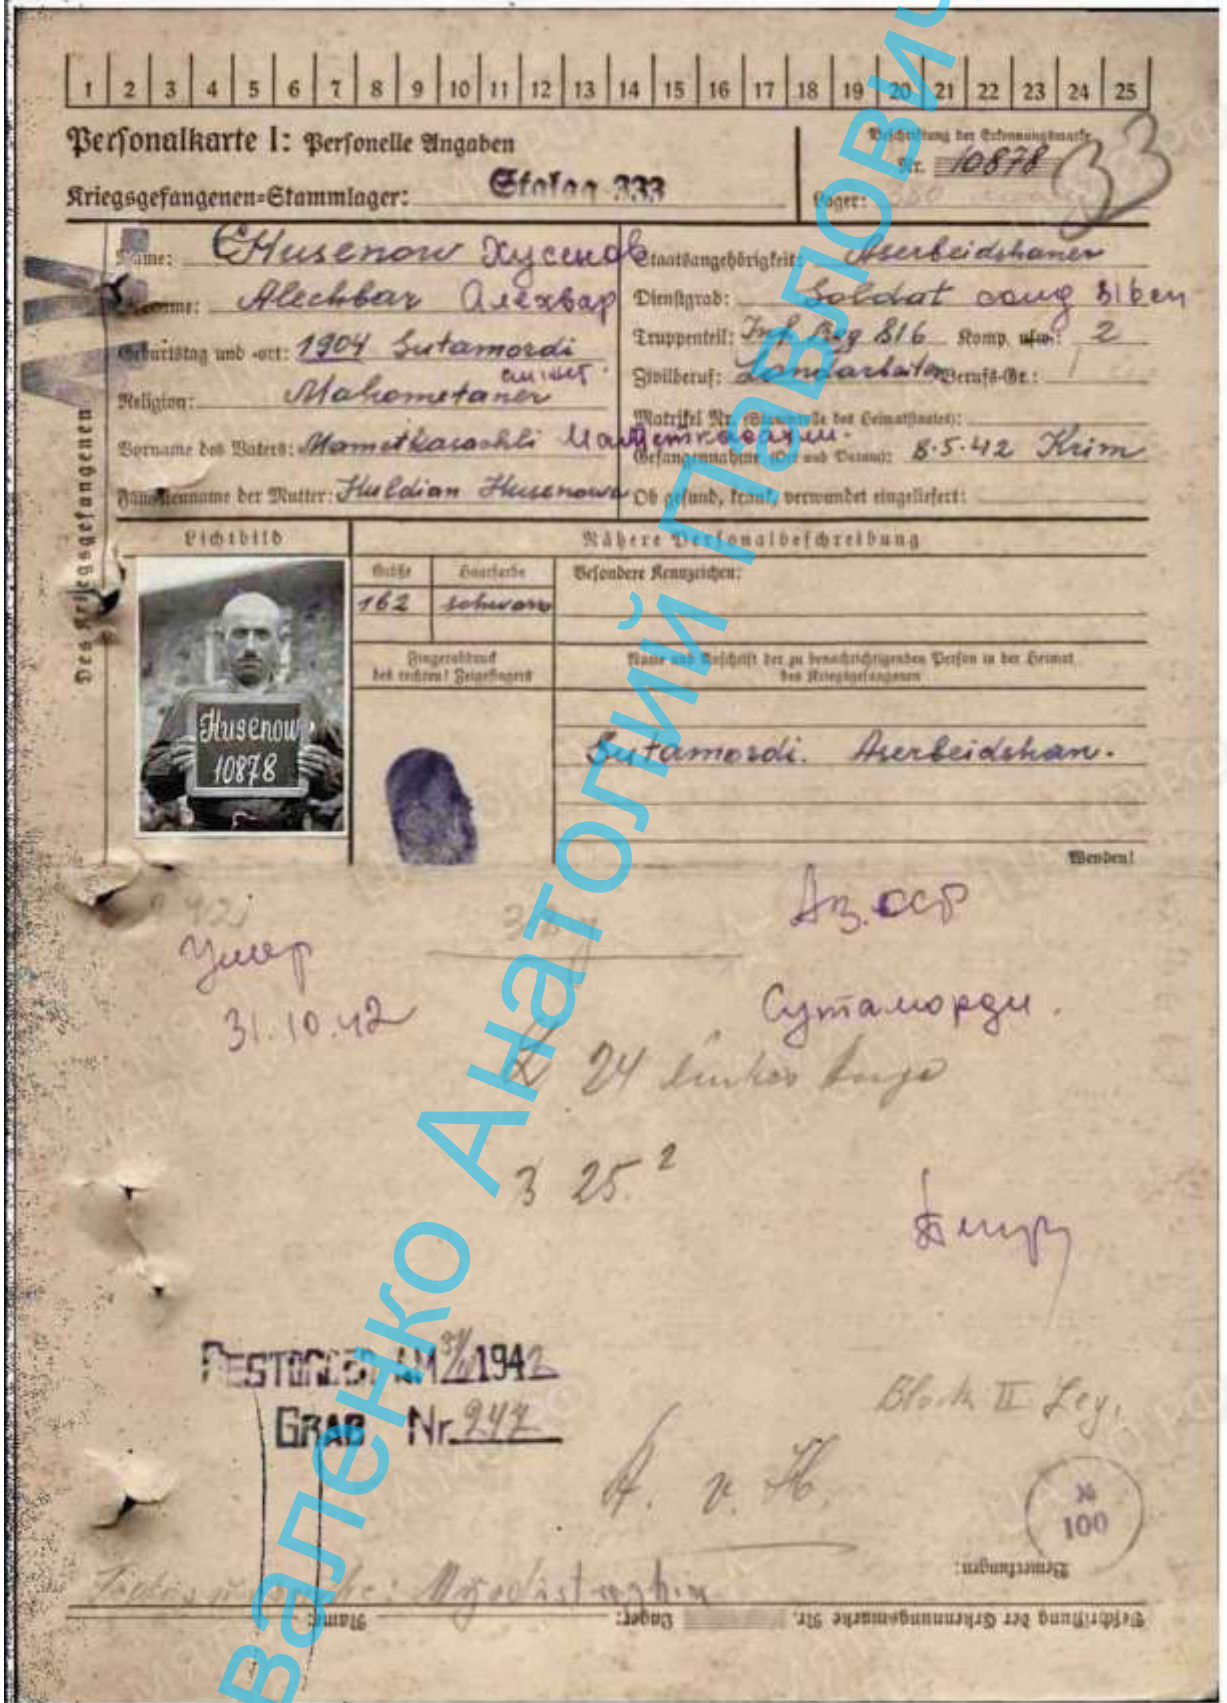 1 2 3 4 5 6 7 8 9 10 11 12 13 14 15 16 17 18 19 20 21 22 23 24 25
Personalkarte I: Personelle Angaben
Kriegsgefangenen=Stammlager: Stalag 333
Beschriftung der Erkennungsmarke
Nr. 10878
Lager:
33
Des Kriegsgefangenen
Name: CHusenow Хусенов
Vorname: Alechbar Алехвар
Geburtstag und -ort: 1904 Sutamordi
Religion: Mahometaner
Vorname des Vaters: Mametkasachli
Familienname der Mutter: Huldian Husenowa
Staatsangehörigkeit: Aserbeidshaner
Dienstgrad: Soldat
Truppenteil: Inf. Reg 816 Komp. usw.: 2
Zivilberuf: Landarbeiter Berufs-Gr.:
Matrikel Nr. (Stammrolle des Heimatstaates):
Gefangennahme (Ort und Datum): 8.5.42 Krim
Ob gesund, krank, verwundet eingeliefert:
Lichtbild
Nähere Personalbeschreibung
Größe Haarfarbe Besondere Kennzeichen:
162 schwarz
Fingerabdruck
des rechten! Zeigefingers
Name und Anschrift der zu benachrichtigenden Person in der Heimat
des Kriegsgefangenen
Husenow
10878
Sutamordi. Aserbeidshan.
Wenden!
Аз. сср
Умер
31.10.42
Сутаморди.
24
3 25.2
GESTORBEN AM 31/10 1942
GRAB Nr. 247
Block II
A. v. H.
X
100
Bemerkungen:
Myodistrophie
Beschriftung der Erkennungsmarke Nr. Lager: Name:
Валенко Анатолий Павлович